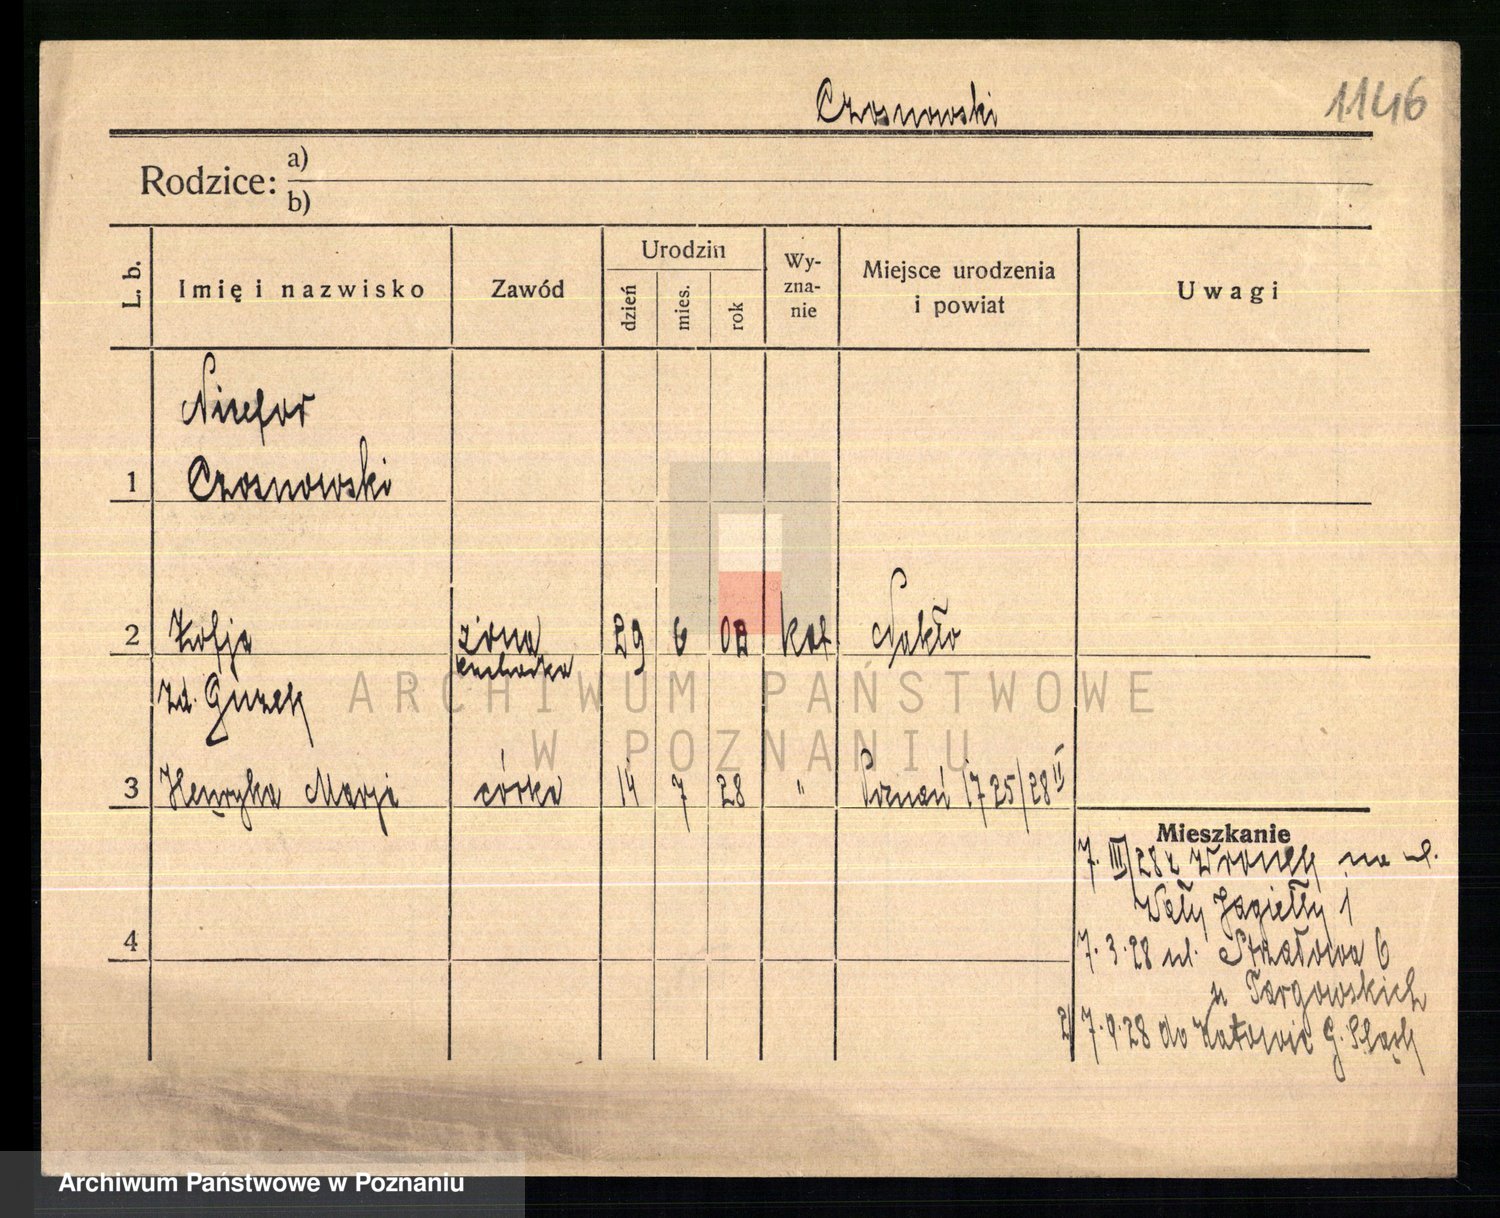 Czosnowski
1146
Rodzice: a)
b)
L. b.
Imię i nazwisko
Zawód
Urodzin
dzień
mies.
rok
Wy-
zna-
nie
Miejsce urodzenia
i powiat
Uwagi
Nicefor
1 Czosnowski
2 Zofja żona 29 6 02 kat Nakło
kucharka
zd. Guzek
3 Henryka Marja córka 14 7 28 " Poznań 1725/28 II
Mieszkanie
7. III/28 z Wronek na ul.
Wały Jagiełły 1
4
7. 3. 28 ul. Strzałowa 6
u Targowskich
2/ 7. 9. 28 do Katowic G. Śląsk
ARCHIWUM PAŃSTWOWE
W POZNANIU
Archiwum Państwowe w Poznaniu